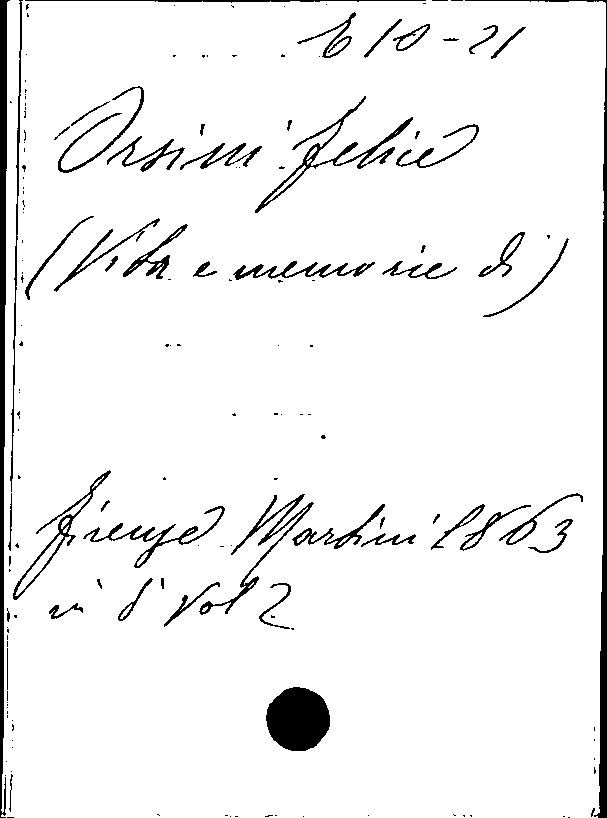 E 10-21
Orsini Felice
(Vita e memorie di)
Firenze Martini 1863
in 8° Vol 2